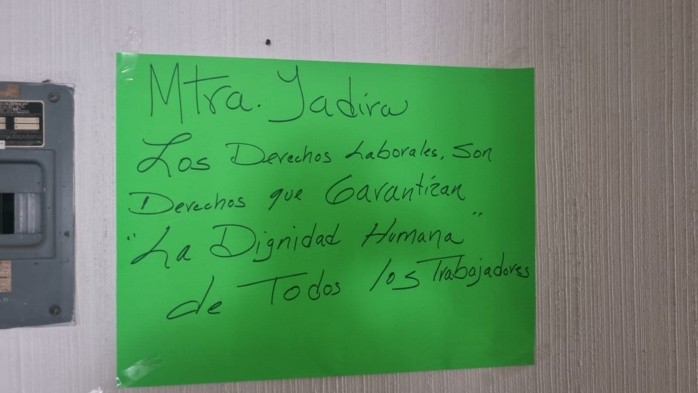 Mtra. Yadira
Los Derechos Laborales, son
Derechos que Garantizan
"La Dignidad Humana"
de Todos los Trabajadores